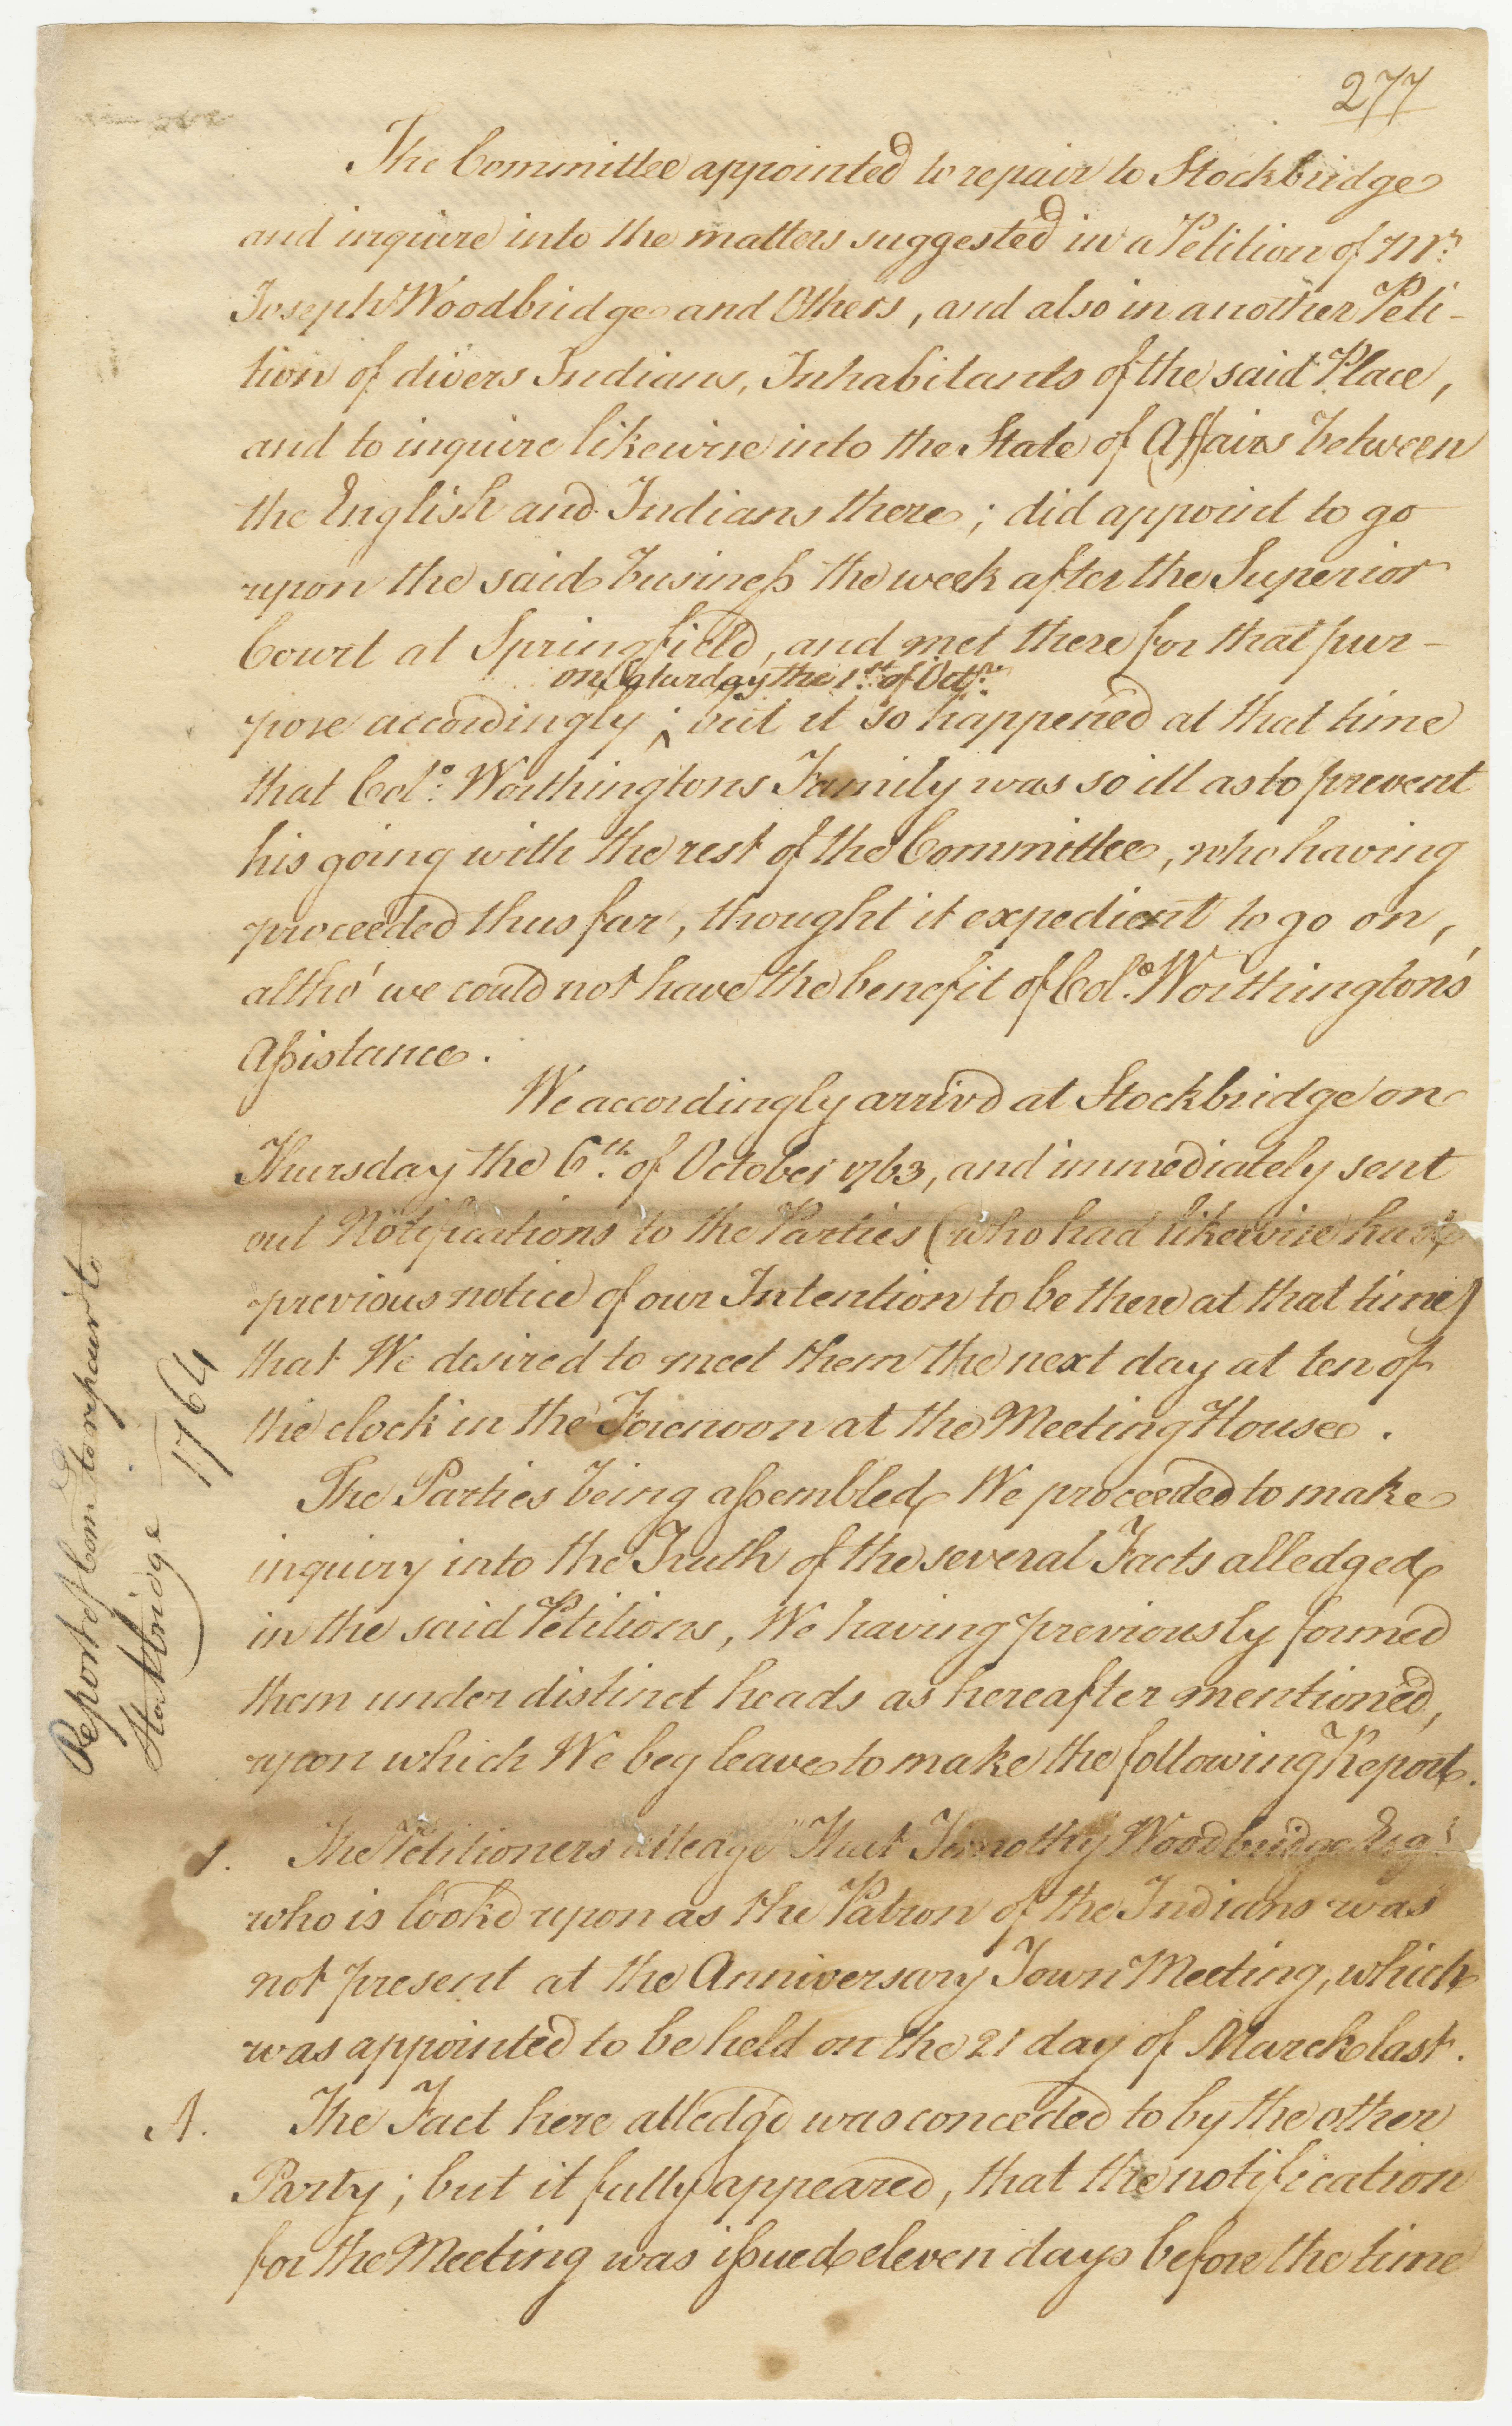 277
The Committee appointed to repair to Stockbridge
and inquire into the matters suggested in a Petition of Mr.
Joseph Woodbridge and Others, and also in another Peti-
tion of divers Indians, Inhabitants of the said Place,
and to inquire likewise into the State of Affairs between
the English and Indians there; did appoint to go
upon the said business the week after the Superior
Court at Springfield, and met there for that pur-
on Saturday the 1st. of Octr.
pose accordingly; ^ but it so happened at that time
that Colo. Worthingtons Family was so ill as to prevent
his going with the rest of the Committee, who having
proceeded thus far, thought it expedient to go on,
altho' we could not have the benefit of Colo. Worthington's
Assistance.
We accordingly arrivd at Stockbridge on
Thursday the 6th. of October 1763, and immediately sent
out Notifications to the Parties (who had likewise had
previous notice of our Intention to be there at that time)
that We desired to meet them the next day at ten of
the clock in the Forenoon at the Meeting House.
The Parties being assembled, We proceeded to make
inquiry into the Truth of the several Facts alledged
in the said Petitions, We having previously formed
them under distinct heads as hereafter mentioned,
upon which We beg leave to make the following Report.
1. The Petitioners alleage "That Timothy Woodbridge Esqr
who is look'd upon as the Patron of the Indians was
not present at the Anniversary Town Meeting, which
was appointed to be held on the 21 day of March last.
A. The Fact here alledg'd was conceded to by the other
Party; but it fully appeared, that the notification
for the Meeting was issued eleven days before the time
Report of Com.tee to repair to
Stockbridge 1764